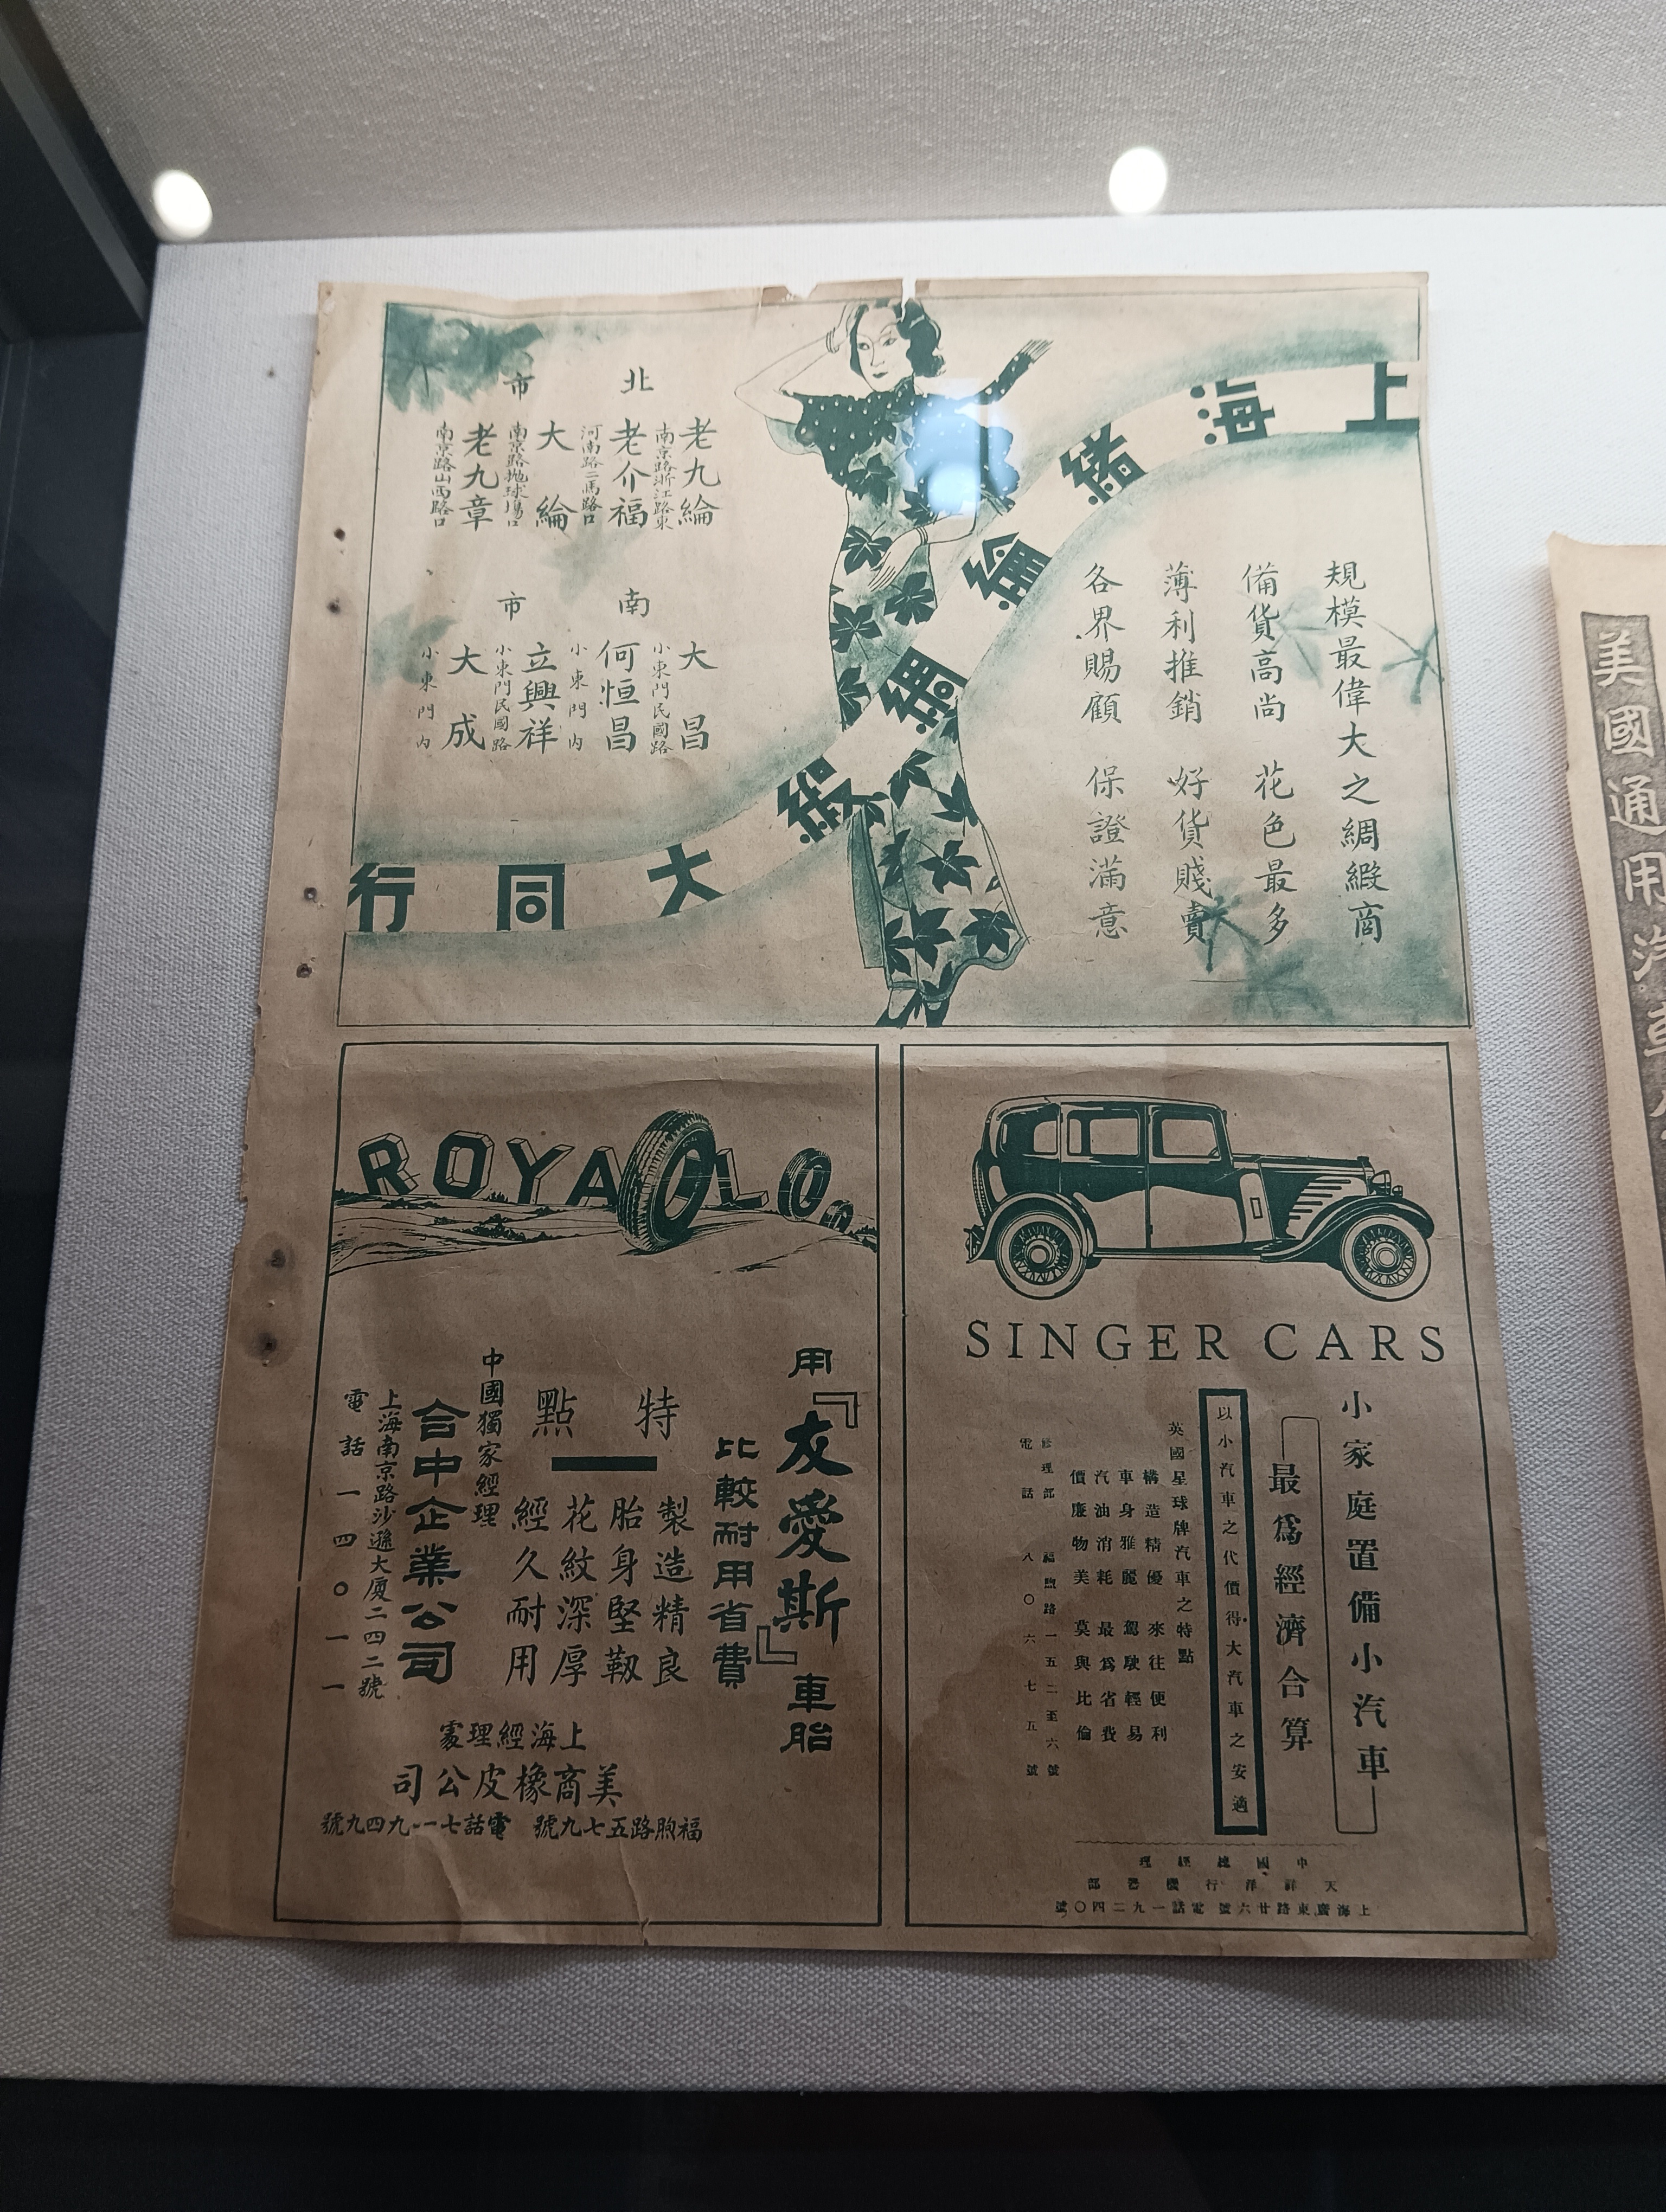 上海緒綸綢緞大同行
規模最偉大之綢緞商
備貨高尚 花色最多
薄利推銷 好貨賤賣
各界賜顧 保證滿意
北市
老九綸
南京路浙江路東
老介福
河南路二馬路口
大綸
南京路抛球場口
老九章
南京路山西路口
南市
大昌
小東門民國路
何恒昌
小東門內
立興祥
小東門民國路
大成
小東門內
SINGER CARS
小家庭置備小汽車
最爲經濟合算
以小汽車之代價得大汽車之安適
英國星球牌汽車之特點
構造精優 來往便利
車身雅麗 駕駛輕易
汽油消耗 最爲省費
價廉物美 莫與比倫
修理部 福煦路一五二至六號
電話 八〇六七五號
中國總經理
天祥洋行機器部
上海廣東路廿六號 電話一九二四〇號
ROYAL
用『友愛斯』車胎
比較耐用省費
特點
製造精良
胎身堅韌
花紋深厚
經久耐用
中國獨家經理
合中企業公司
上海南京路沙遜大廈二四二號
電話一四〇一一
上海經理處
美商橡皮公司
福煦路五七九號 電話七一一九四九號
美國通用汽車